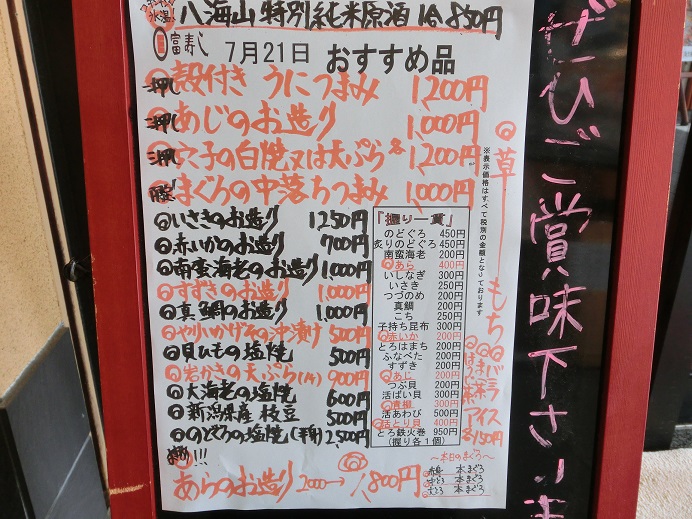 八海山 特別純米原酒 1合 850円
富寿し 7月21日 おすすめ品
一押し 殻付き うにつまみ 1,200円
二押し あじのお造り 1,000円
三押し 穴子の白焼又は天ぷら 各1,200円
まぐろの中落ちつまみ 1,000円
いさきのお造り 1250円
赤いかのお造り 700円
南蛮海老のお造り 1,000円
すずきのお造り 1,000円
真鯛のお造り 1,000円
沖漬け 500円
貝ひもの塩焼 500円
岩かきの天ぷら 900円
大海老の塩焼 600円
新潟県産 枝豆 500円
のどぐろの塩焼 2,500円
!!!
あらのお造り 2000→1,800円
『握り一貫』
のどぐろ 450円
炙りのどぐろ 450円
南蛮海老 200円
あら 400円
いしなぎ 300円
いさき 250円
つづのめ 200円
真鯛 200円
こち 250円
子持ち昆布 300円
赤いか 200円
とろはまち 200円
ふなべた 200円
すずき 200円
あじ 200円
つぶ貝 200円
活ばい貝 300円
青柳 300円
活あわび 500円
活とり貝 400円
とろ鉄火巻 950円
(握り各1個)
~本日のまぐろ~
赤身 本まぐろ
中とろ 本まぐろ
大とろ 本まぐろ
※表示価格はすべて税別の金額となっております
草もち
バニラ
アイス
各150円
ぜひご賞味下さいませ